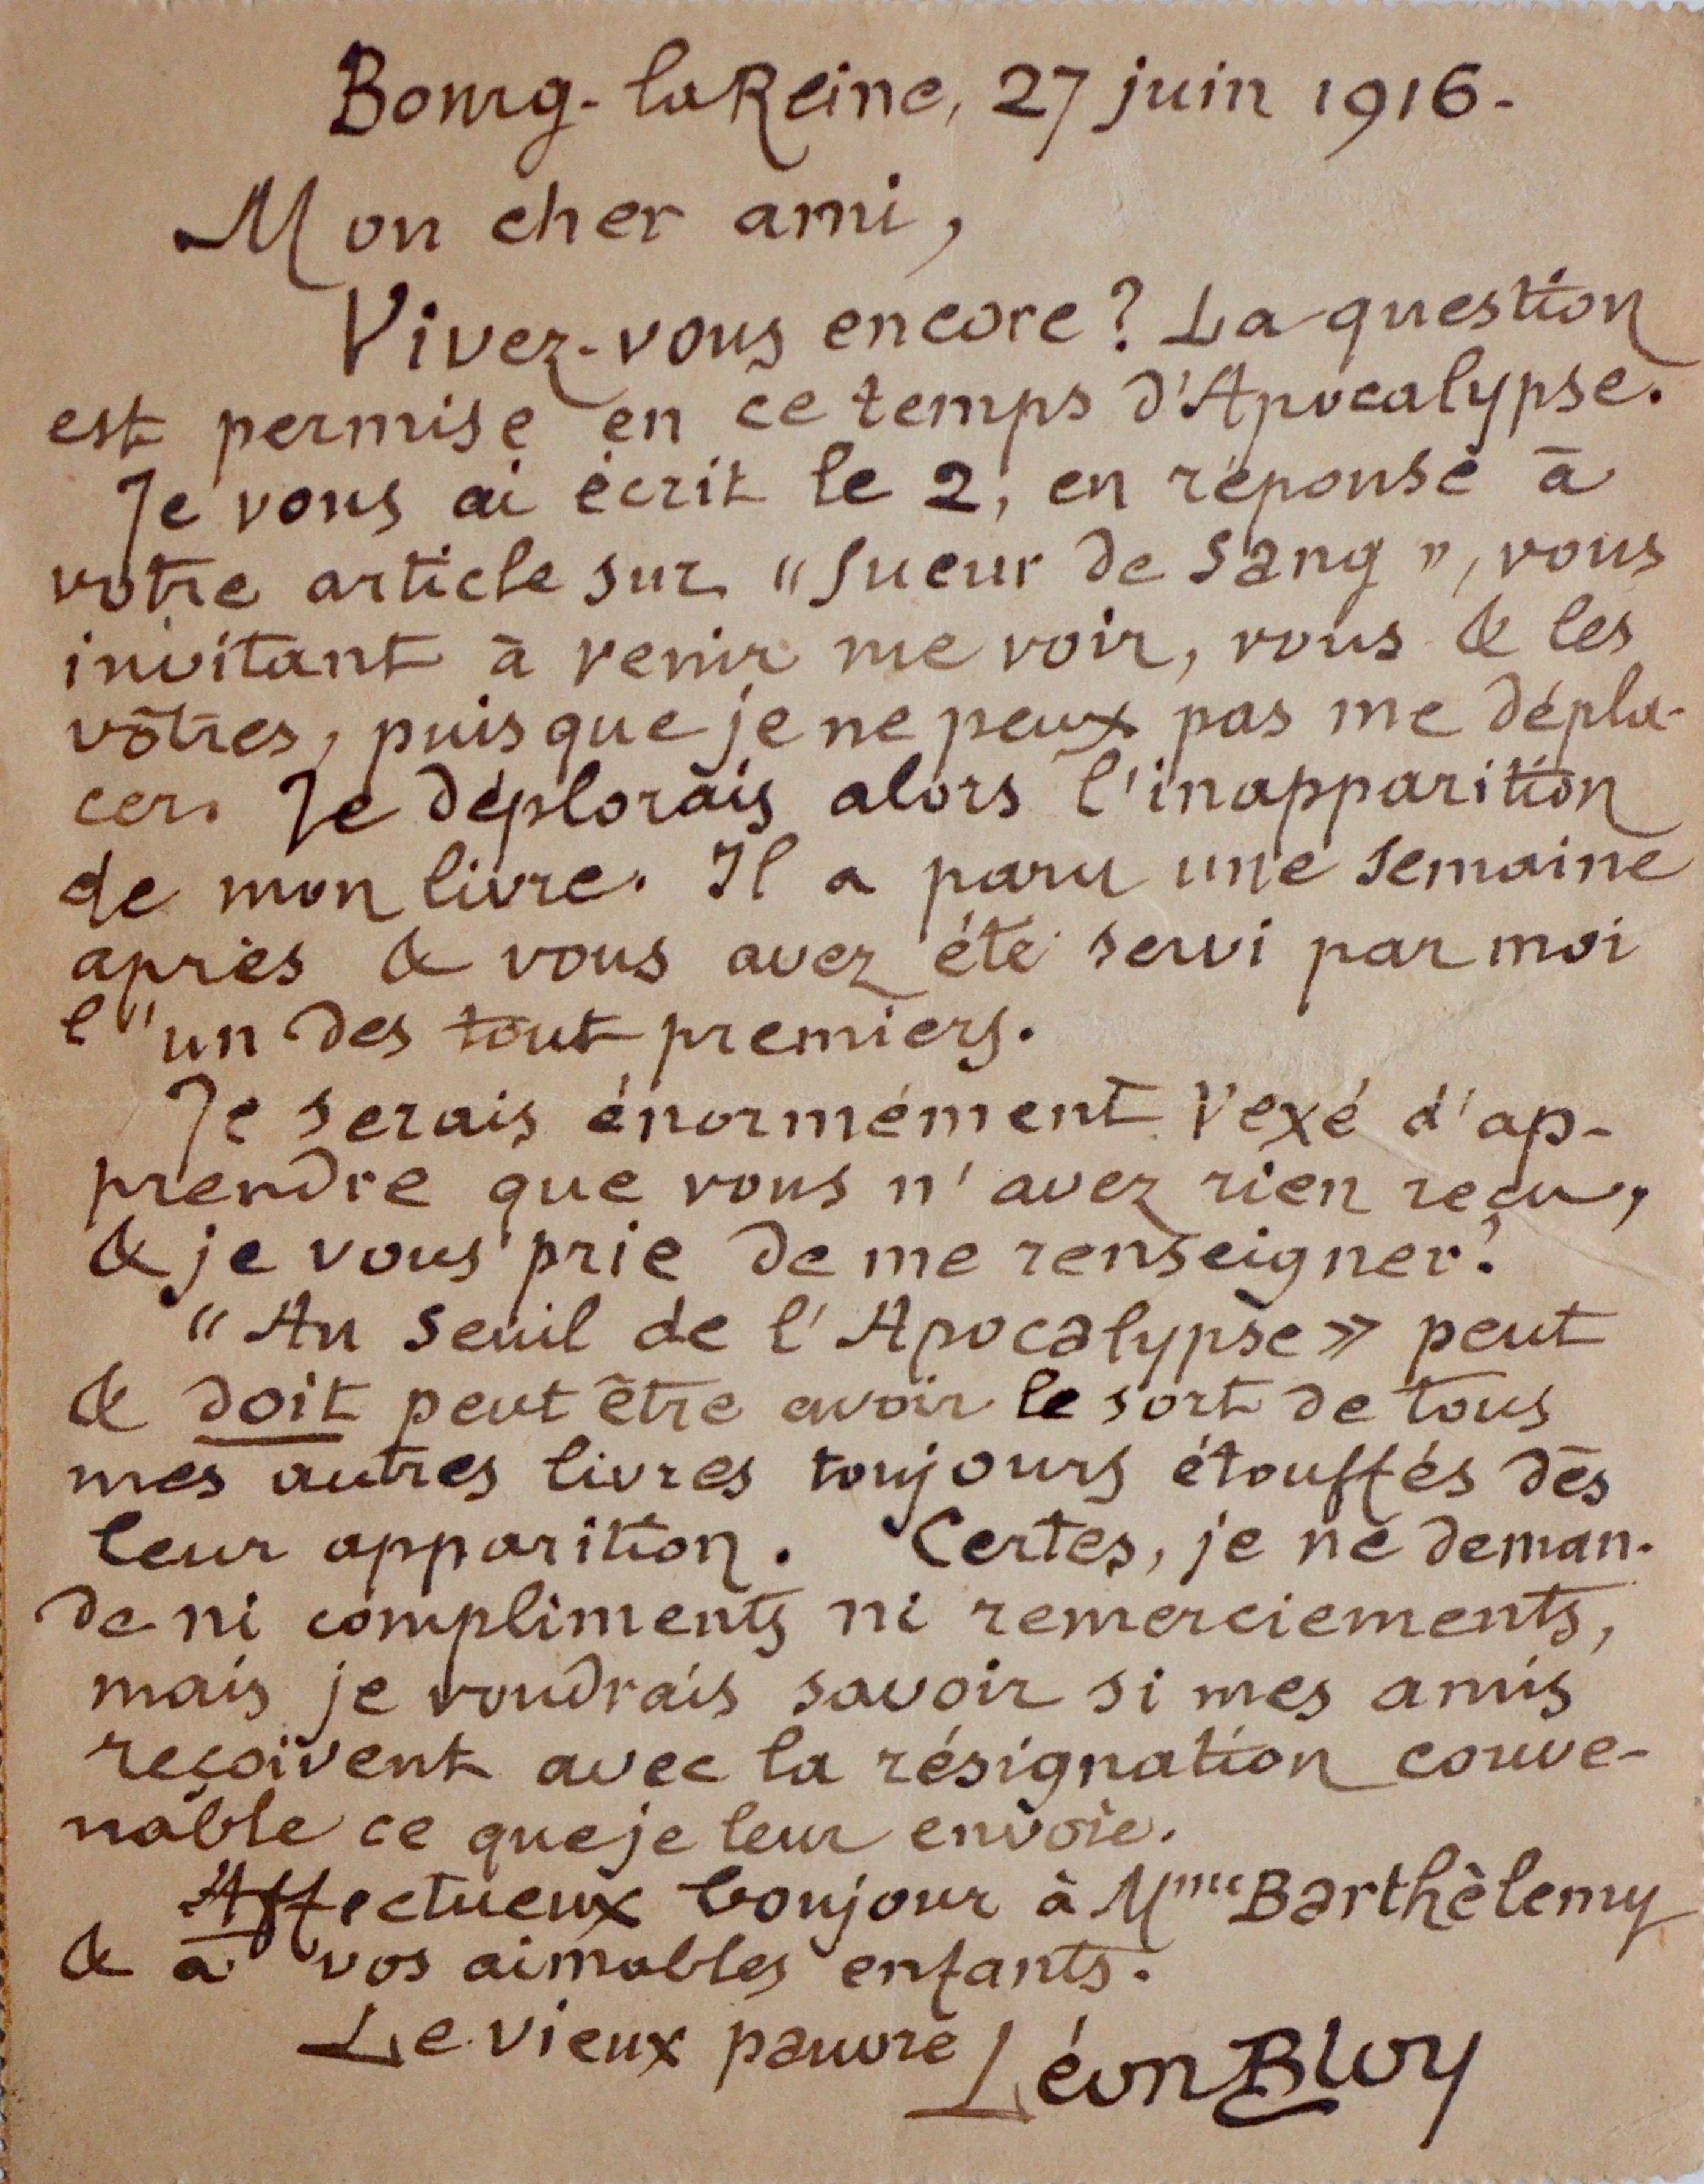 Bourg-la Reine, 27 juin 1916-
Mon cher ami,
Vivez-vous encore? La question
est permise en ce temps d'Apocalypse.
Je vous ai écrit le 2, en réponse à
votre article sur "Sueur de Sang", vous
invitant à venir me voir, vous & les
vôtres, puisque je ne peux pas me dépla-
cer. Je déplorais alors l'inapparition
de mon livre. Il a paru une semaine
après & vous avez été servi par moi
l'un des tout premiers.
Je serais énormément vexé d'ap-
prendre que vous n'avez rien reçu,
& je vous prie de me renseigner.
"Au seuil de l'Apocalypse» peut
& doit peut être avoir le sort de tous
mes autres livres toujours étouffés dès
leur apparition. Certes, je ne deman-
de ni compliments ni remerciements,
mais je voudrais savoir si mes amis
reçoivent avec la résignation conve-
nable ce que je leur envoie.
Affectueux bonjour à Mme Barthèlemy
& à vos aimables enfants.
Le vieux pauvre Léon Bloy